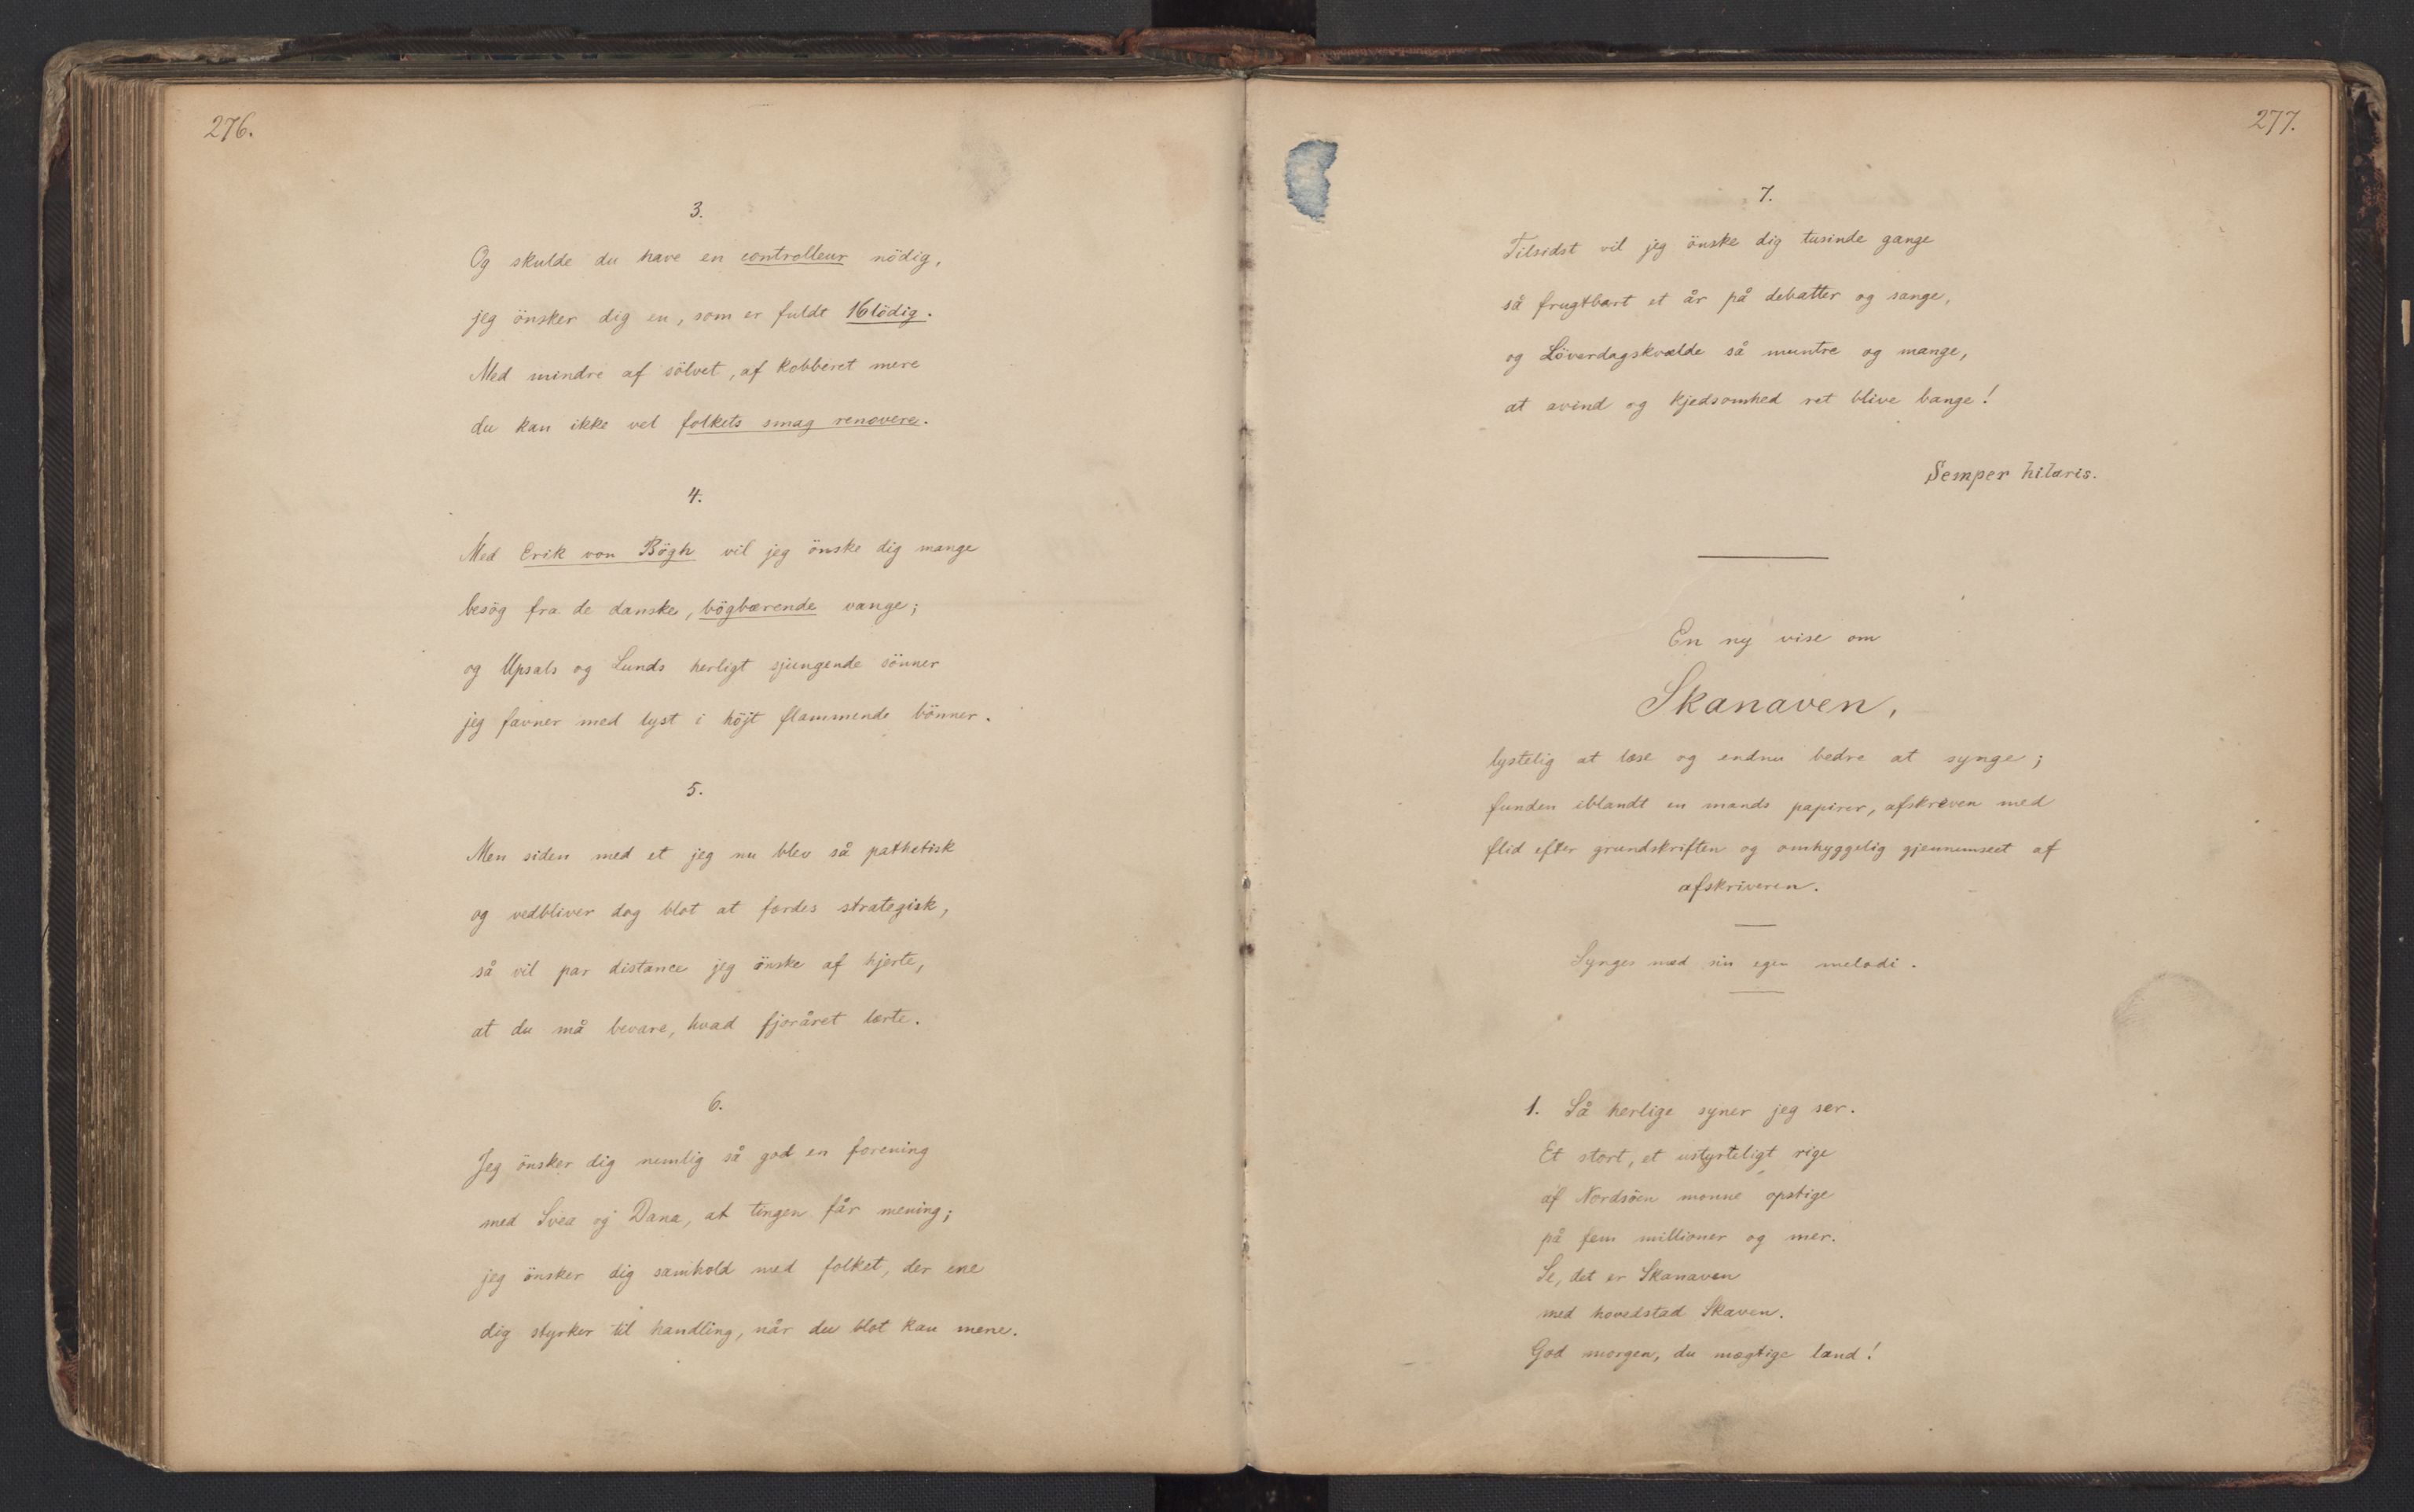 276.
3.
Og skulde du have en controlleur nödig,
jeg önsker dig en, som er fuldt 16lödig.
Med mindre af sölvet, af kobberet mere
du kan ikke vel folkets smag renovere.
4.
Med Erik von Bögh vil jeg önske dig mange
besög fra de danske, bögbærende vange;
og Upsals og Lunds herligt sjungende sönner
jeg favner med lyst i höjt flammende bönner.
5.
Men siden med et jeg nu blev så pathetisk
og vedbliver dog blot at færdes strategisk,
så vil par distance jeg önske af hjerte,
at du må bevare, hvad fjoråret lærte.
6.
Jeg önsker dig nemlig så god en forening
med Svea og Dana, at tingen får mening;
jeg önsker dig samhold med folket, der ene
dig styrker til handling, når du blot kan mene.
277.
7.
Tilsidst vil jeg önske dig tusinde gange
så frugtbart et år på debatter og sange,
og Löverdagskvælde så muntre og mange,
at avind og kjedsomhed ret blive bange!
Semper hilaris.
En ny vise om
Skanaven,
lystelig at læse og endnu bedre at synge;
funden iblandt en mands papirer, afskreven med
flid efter grundskriften og omhyggelig gjennemseet af
afskriveren.
Synges med sin egen melodi.
1. Så herlige syner jeg ser.
Et stort, et ustyrteligt rige
af Nordsöen monne opstige
på fem millioner og mer.
Se, det er Skanaven
med hovedstad Skaven.
God morgen, du mægtige land!